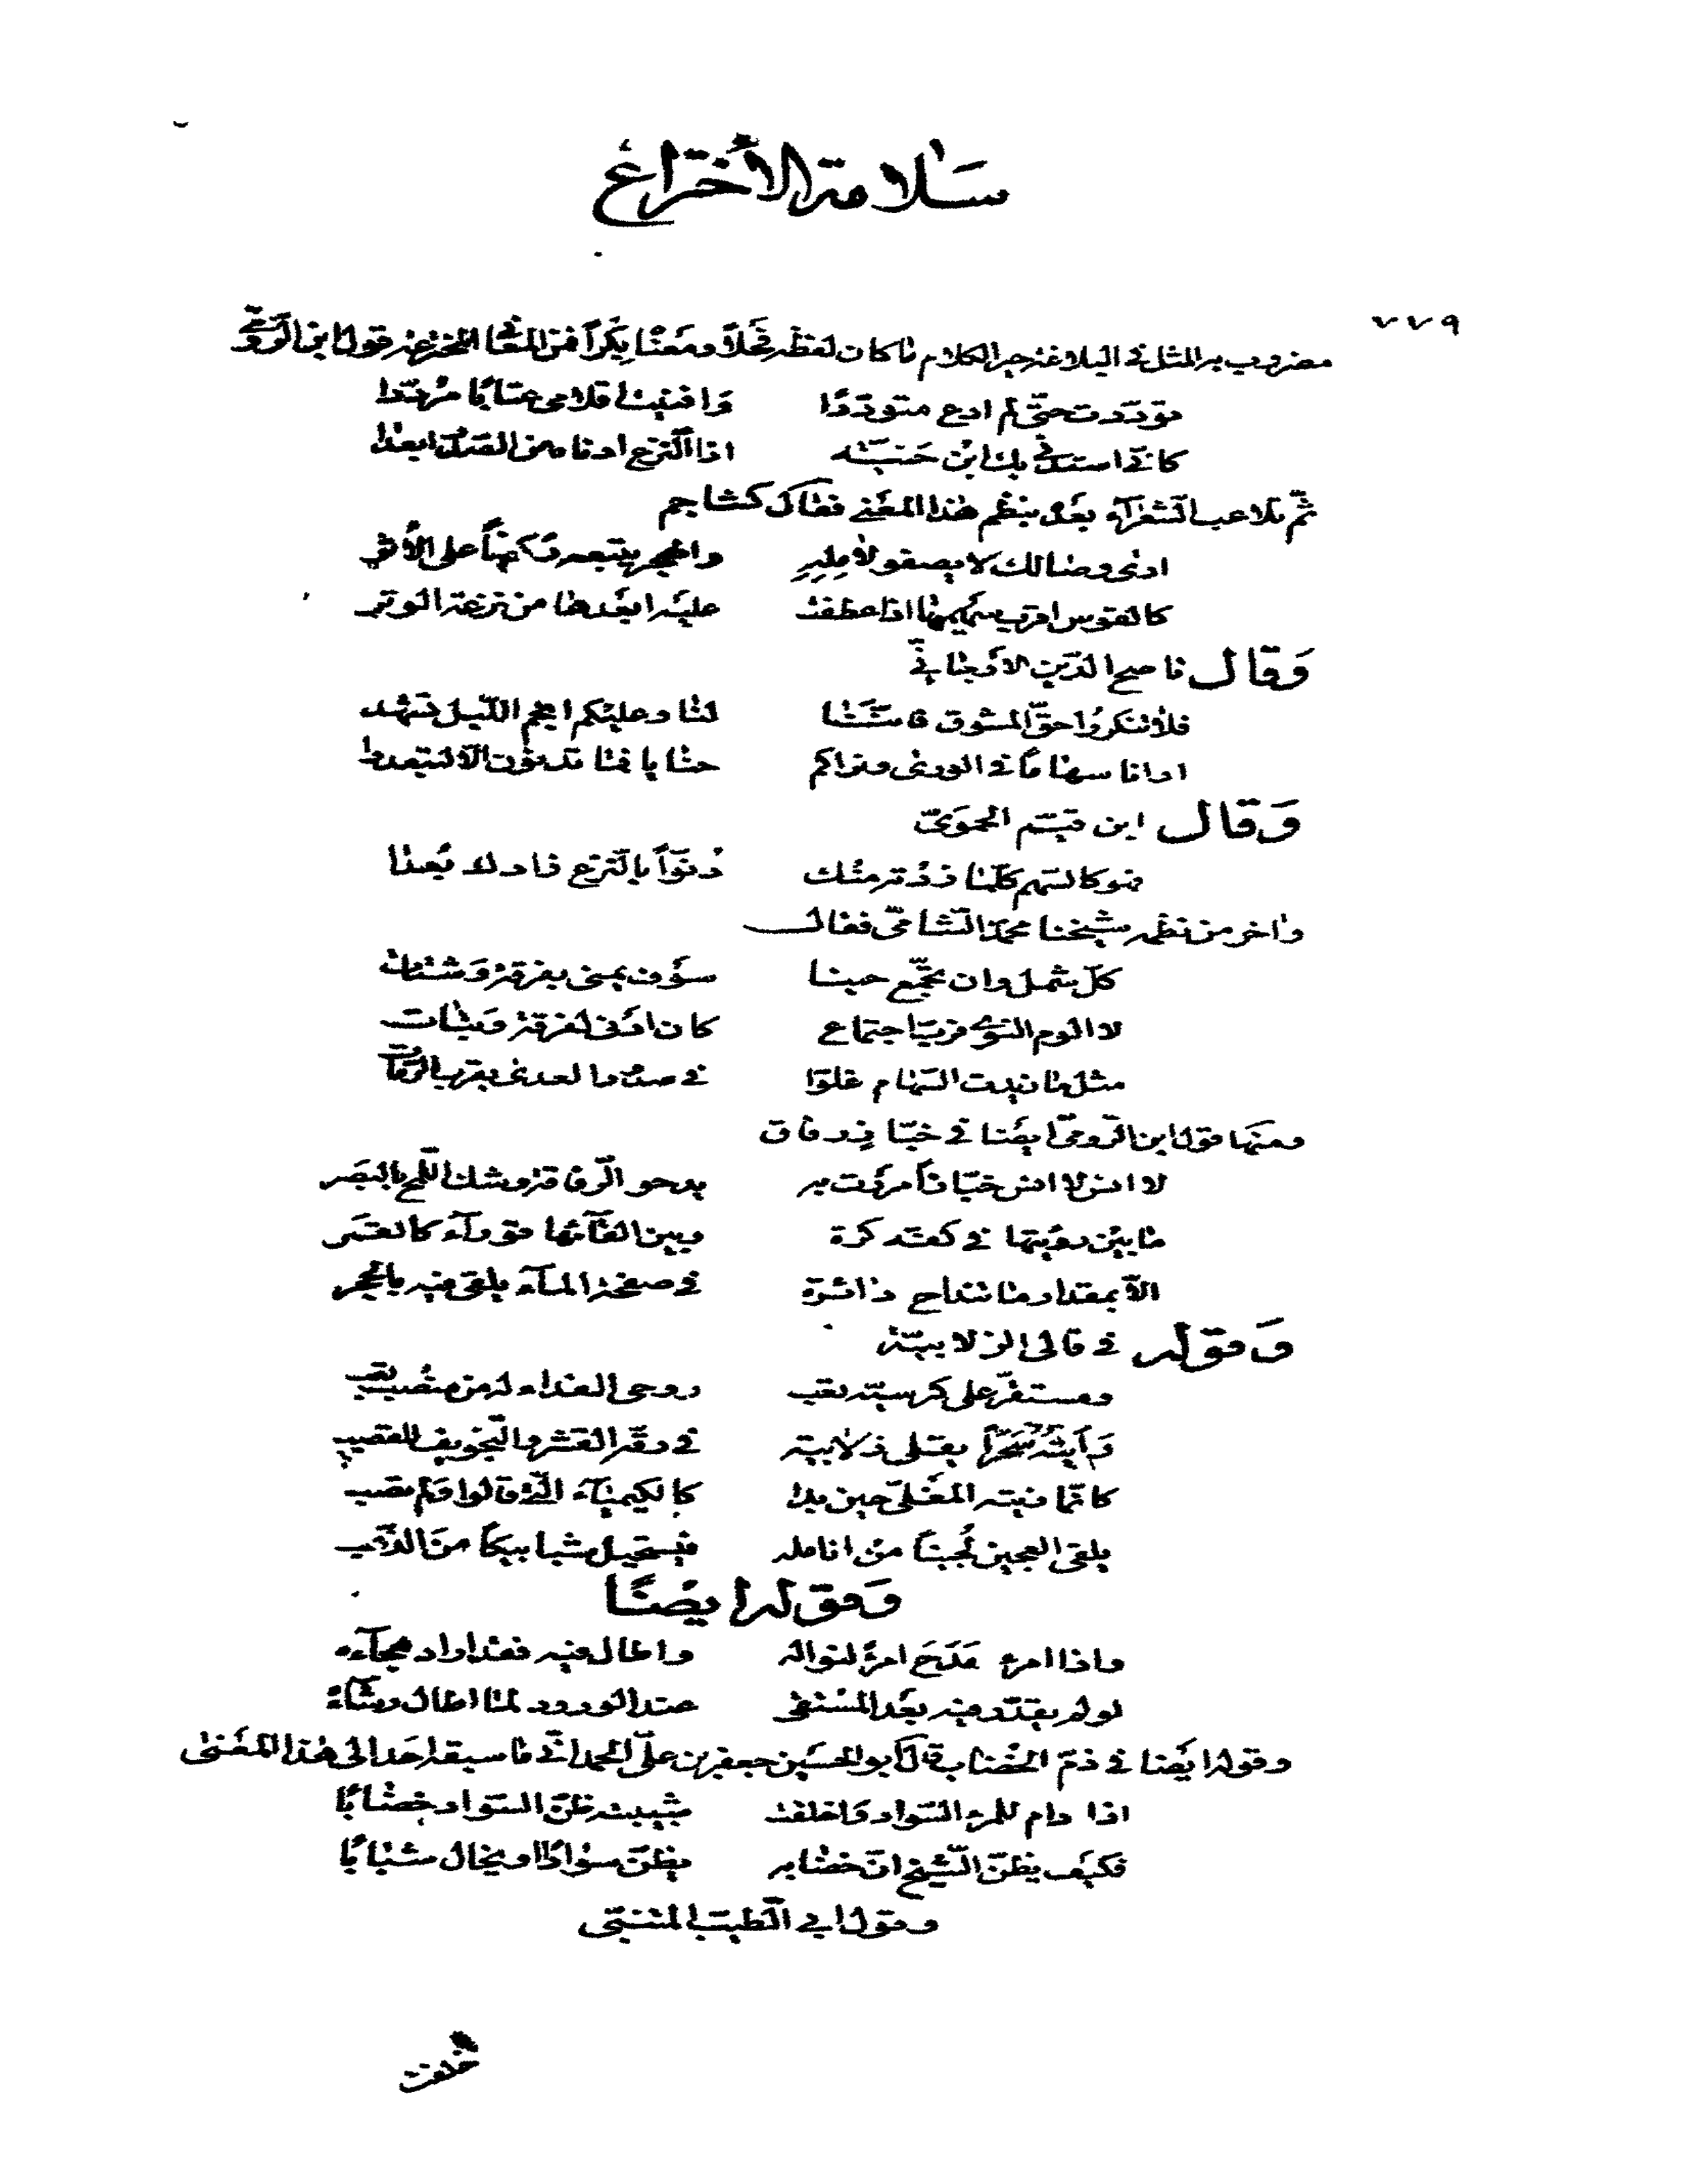 سلامة الأختراع
٧٧٩
مضروب به المثل في البلاغة خير الكلام ما كان لفظه فحلاً ومعناه بكراً فمن المعاني المخترعة قول ابن الرومي
توددت حتى لم ادع متوددا وافنيت اقلامي عتابا مرددا
كاني استدني بك ابن حنيّة اذا النزع ادناه من الصدر ابعدا
ثم تلاعب الشعراء بعده بنظم هذا المعنى فقال كشاجم
ارى وصالك لا يصفو لآمله والهجر يتبعه ركضاً على الأثر
كالقوس اقرب سهميها اذا عطفت عليه ابعدها من نزعة الوتر
وقال ناصح الدين الارجاني
فلا تنكروا حق المشوق فانما لنا وعليكم انجم الليل تشهد
ارانا سهاما في الورى ونراكم حنايا فما تدنون الا لتبعدوا
وقال ابن قسيم الحموي
فهو كالسهم كلما زدته منك دنوّاً بالنزع زادك بعدا
واخر من نظمه شيخنا محمد الشامي فقال
كل شمل وان تجمع حينا سوف يمنى بفرقة وشتات
لا الوم النوى فرب اجتماع كان ادنى لفرقة وبتات
مثل ما زيدت السهام غلوا في صدور العدى بقرب الرماة
ومنها قول ابن الرومي ايضا في خباز رقاق
لا انس لا انس خبازاً مررت به يدحو الرقاقة وشك اللمح بالبصر
ما بين رؤيتها في كفه كرة وبين القائها قوراء كالقمر
الا بمقدار ما تنداح دائرة في صفحة الماء يلقى فيه بالحجر
وقوله في قالي الزلابية
ومستقر على كرسيه تعب روحي الفداء له من منصب تعب
رأيته سحراً يقلي زلابية في رقة القشر والتجويف كالقصب
كانما زيته المغلي حين بدا كالكيمياء التي قالوا ولم تصب
يلقي العجين لجيناً من انامله فيستحيل شبابيكاً من الذهب
وقوله ايضا
واذا امرء مدح امرءً لنواله واطال فيه فقد اراد هجاءه
لو لم يقدر فيه بعد المستقى عند الورود لما اطال رشاءه
وقوله ايضا في ذم الخضاب قال ابو الحسين جعفر بن علي الحمداني ما سبقه احد الى هذا المعنى
اذا دام للمرء السواد واخلقت شبيبته ظن السواد خضابا
فكيف يظن الشيخ ان خضابه يظن سوادا او يخال شبابا
وقول ابي الطيب المتنبي
خلقت